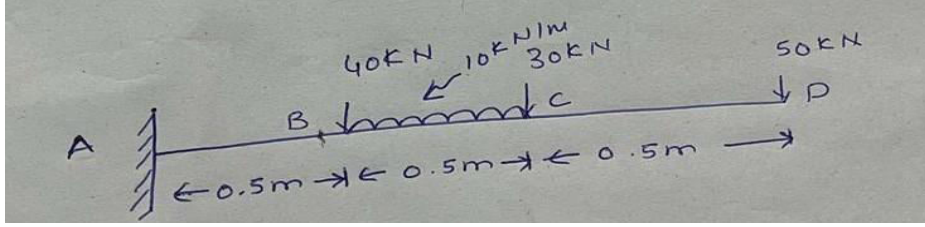 40KN 10KN/m 30KN 50KN
A B C D
0.5m 0.5m 0.5m